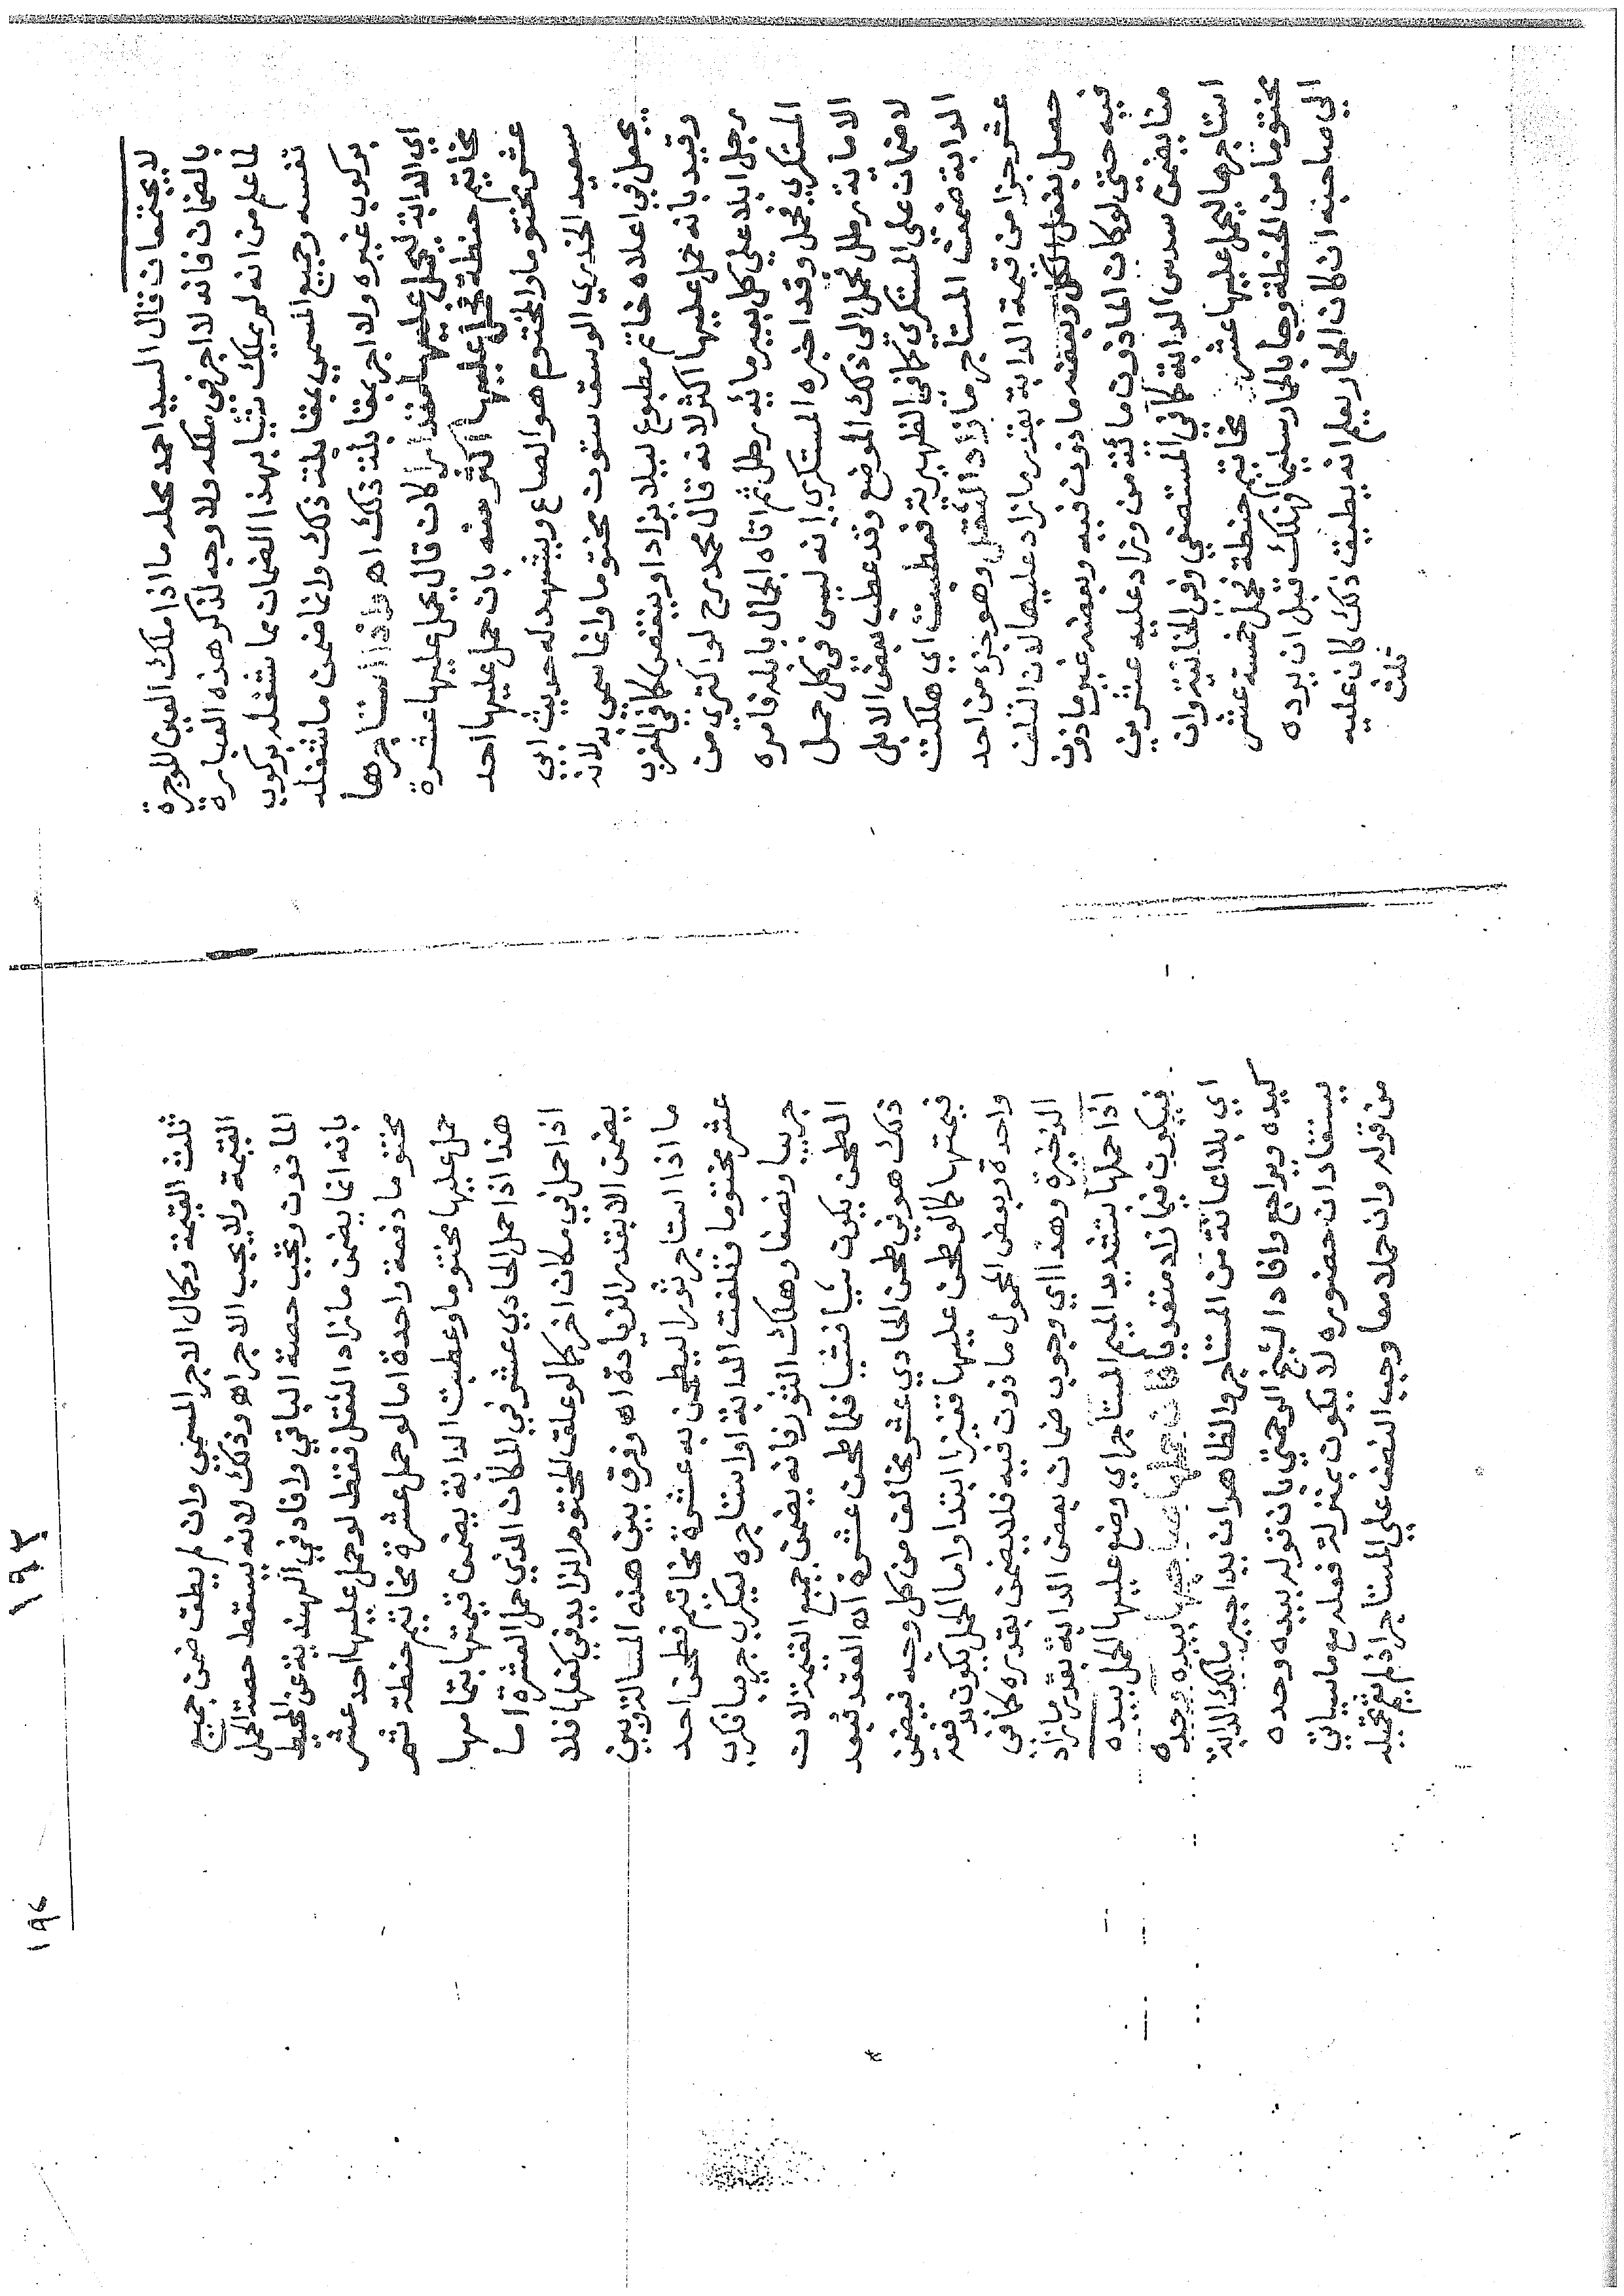 لا يجتمعان قال السيد احمد محله ما اذا ملك العين الموجرة
بالضمان فانه لا اجر في ملكه ولا وجه لذكر هذه العبارة
لما علم من انه لم يملك شيئا بهذا الضمان مما شغله بركوب
نفسه وجميع المسمى بمقابلة ذلك وانما ضمن ما شغله
بركوب غيره ولا اجر بمقابلة ذلك اه واذا استاجرها
اي الدابة ليحمل عليها مقدارا كان قال يحمل عليها عشرة
مخاتيم حنطة فحمل عليها اكثر منه بان حمل عليها احد
عشر مختوما والمختوم هو الصاع ويشهد له حديث ابي
سعيد الخدري الوسق ستون مختوما وانما سمي به لانه
يجعل في اعلاه خاتم مطبوع ليلا يزاد او ينقص كما في المغرب
وقيد بانه حمل عليها اكثر لانه قال محمد رح لو اكترى من
رجل ابلا على كل بعير مائة رطل ثم اتاه الجمال بابله فامره
المستكري فحمل وقد اخبره المستكري انه ليس في كل حمل
الا ماية رطل فحمل الى ذلك الموضع وقد عطب بعض الابل
لا ضمان على المستكري كما في الظهيرية فعطبت اي هلكت
الدابة ضمن المستاجر ما زاد الثقل وهو جزء من احد
عشر جزا من قيمة الدابة بقدر ما زاد عليها لان التلف
حصل بفعل الكل وبعضه ماذون فيه وبعضه غير ماذون
فيه حتى لو كان الماذون مائة من وزاد عليه عشرين
منا يضمن سدس الدابة كما في المستصفى وفي الخانية وان
استاجرها ليحمل عليها عشر مخاتيم حنطة فحمل خمسة عشر
مختوما من الحنطة وجا بالحمار سليما فهلك قبل ان يرده
الى صاحبه ان كان الحمار يعلم انه يطيق ذلك كان عليه
ثلث
١٩٣
١٩٤
ثلث القيمة وكمال الاجر المسمى وان لم يطق ضمن جميع
القيمة ولا يجب الاجر اه وذلك لانه يسقط حصة الحمل
الماذون وتجب حصة الباقي وافاد في الهندية عن المحيط
بانه انما يضمن ما زاد الثقل فقط لو حمل عليها احد عشر
مختوما دفعة واحدة اما لو حمل عشرة مخاتيم حنطة ثم
حمل عليها مختوما وعطبت الدابة يضمن قيمتها بتمامها
هذا اذا حمل الحادي عشر في المكان الذي حمل العشرة اما
اذا حمل في مكان اخر كما لو علق المختوم الزايد في كفلها فلا
يضمن الا بقدر الزيادة اه وفرق بين هذه المسالة وبين
ما اذا استاجر ثورا ليطحن به عشرة مخاتيم فطحن احد
عشر مختوما فتلفت الدابة او استاجره ليكرب جريبا فكرب
جريبا ونصفا وهلك الثور فانه يضمن جميع القيمة لان
الطحن يكون شيا فشيا فلما طحن عشرة انه العقد فبعد
ذلك هو في طحن الحادي عشر مخالف من كل وجه فيضمن
قيمتها كما لو طحن عليها قفيزا ابتدا واما الحمل يكون دفعة
واحدة وبعض المحمول ماذون فيه فلا يضمن بقدره كما في
الذخيرة وهذا اي وجوب ضمان بعض الدابة بقدر ما زاد
اذا حملها بتشديد الميم المستاجر اي وضع عليها الحمل بيده
فيكون فيما زاد متعديا فان حملها صاحبها بيده وحده
اي بلا اعانة من المستاجر والظاهر ان يد اجير مالك الدابة
كيده ويراجع وافاد الشيخ الرحمتي بان قوله بيده وحده
يستفاد ان حضوره لا يكون بمنزلة فعله مع ما سياتي
من قوله وان حملاه معا وجب النصف على المستاجر اذ لم يقم بحمله